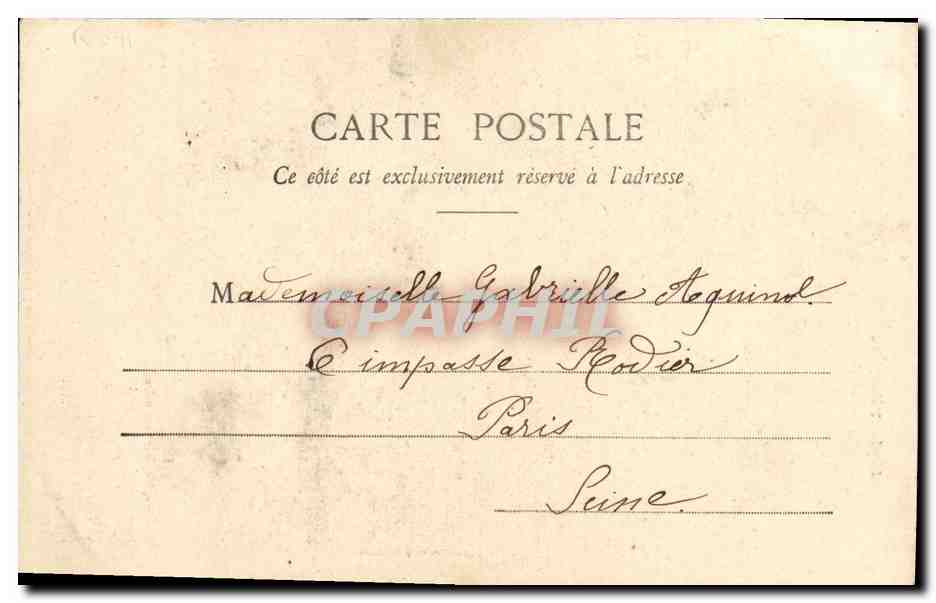 CARTE POSTALE
Ce côté est exclusivement réservé à l'adresse
Mademoiselle Gabrielle Aguinol.
6 impasse Rodier
Paris
Seine.
CPAPHIL